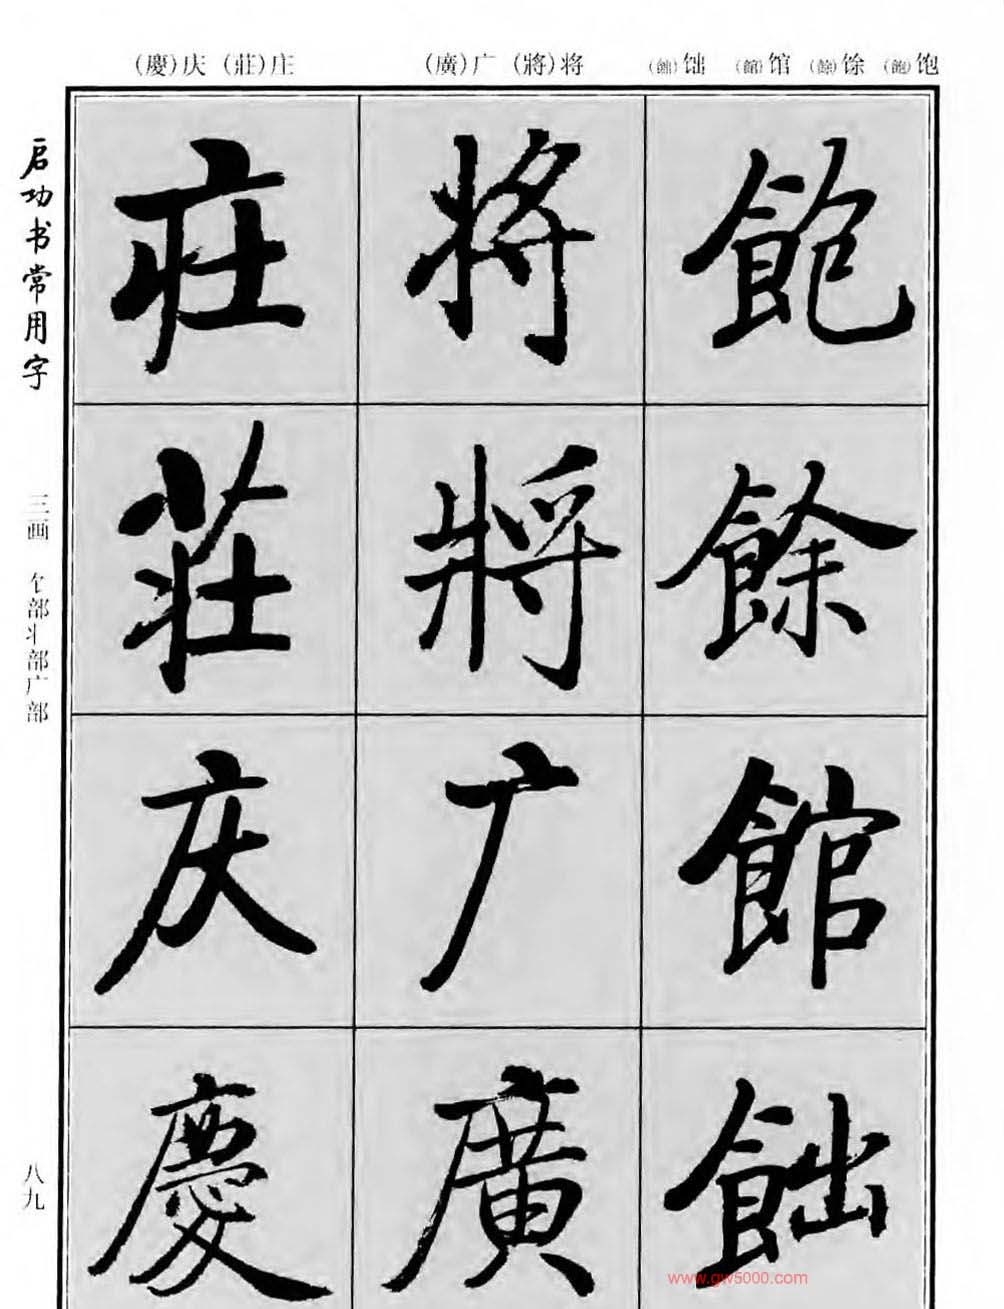 (慶)庆 (莊)庄 (廣)广 (將)将 (飿)饳 (館)馆 (餘)馀 (飽)饱
飽餘館飿
将將广廣
庄莊庆慶
启功书常用字
三画 饣部丬部广部
八九
www.gw5000.com